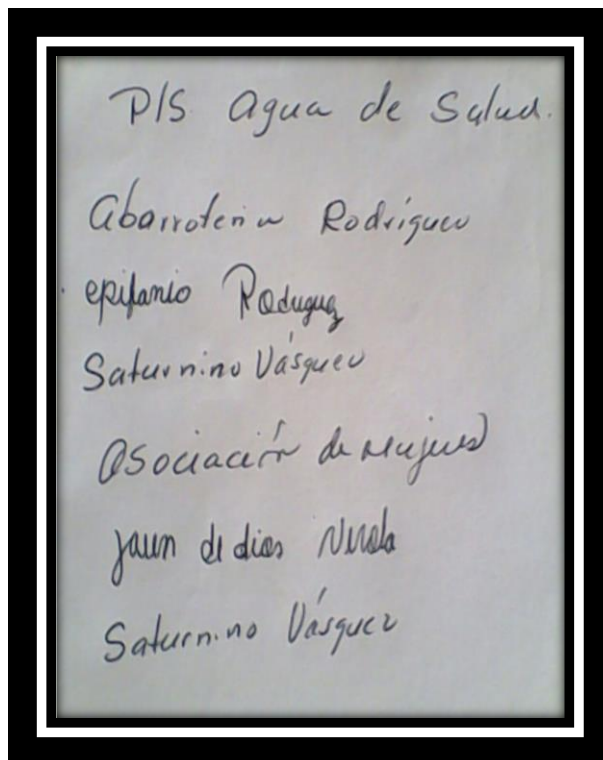 P/S Agua de Salud.
Abarroteria Rodríguez
epifanio Roduguez
Saturnino Vásquez
Asociación de mujeres
jaun de dios
Saturnino Vásquez